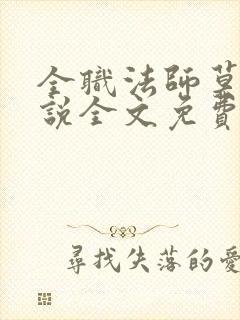 全職法師
說全文免費
尋找失落的愛